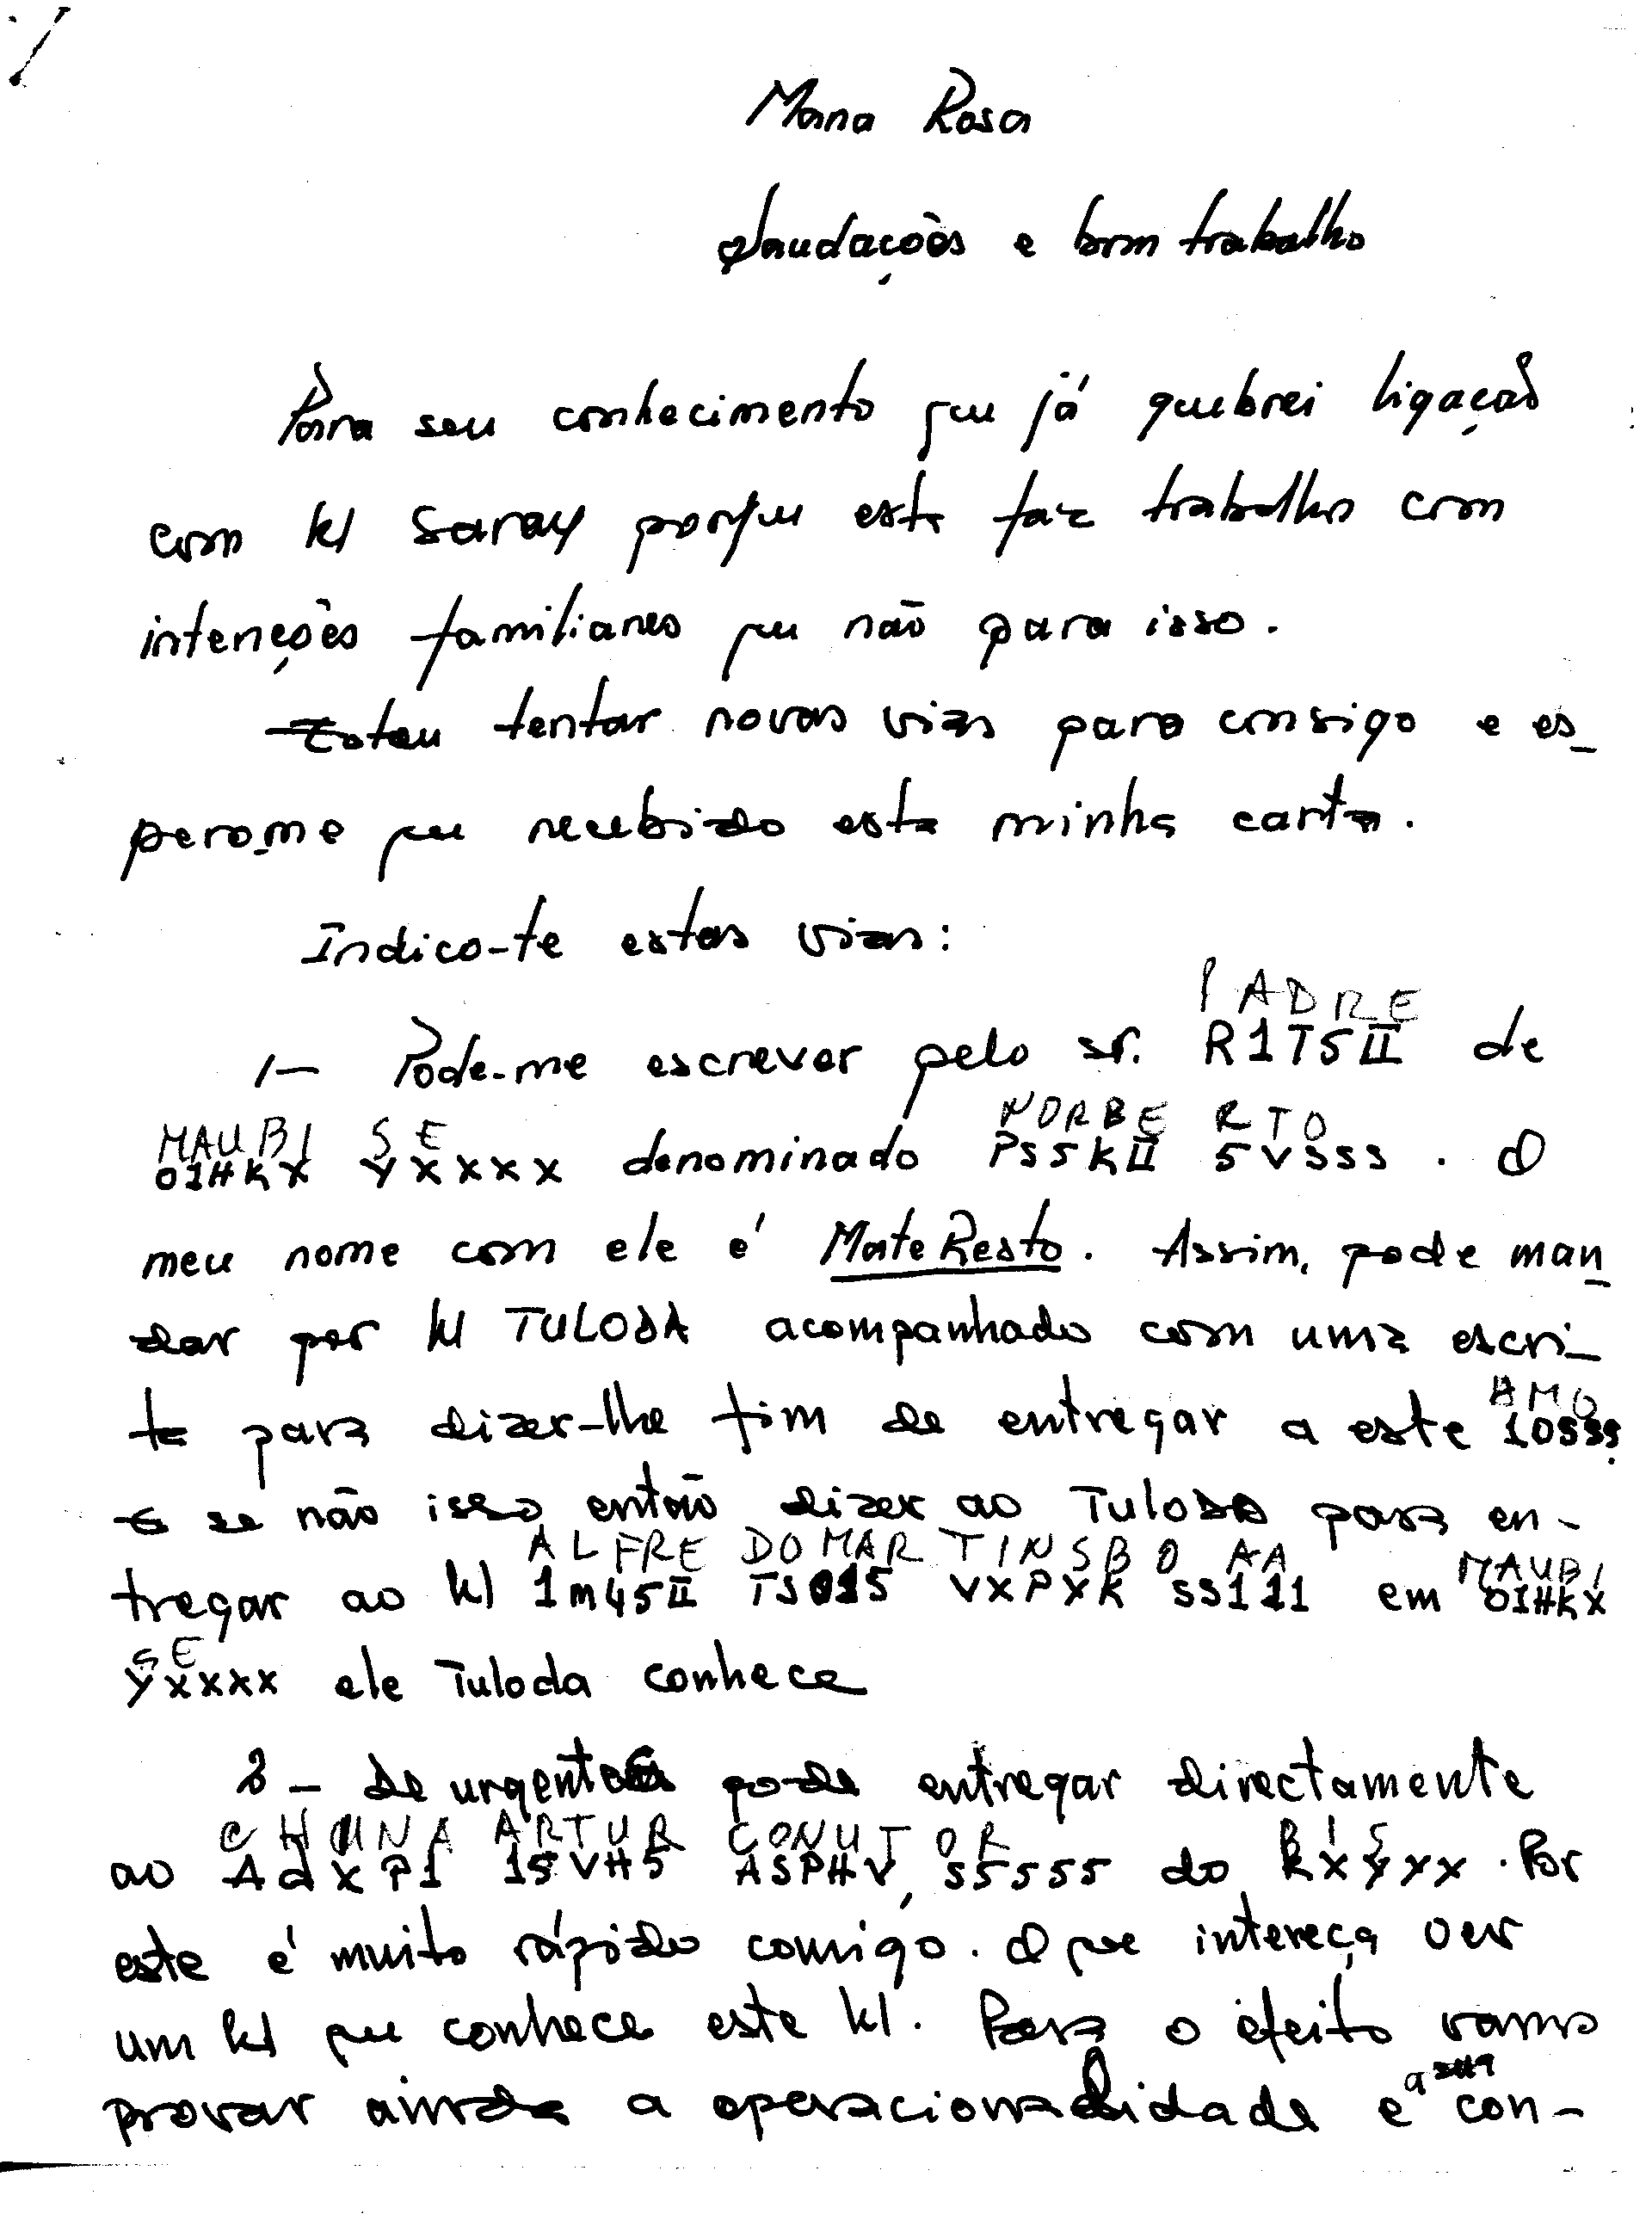 Mana Rosa
Saudações e bom trabalho
Para seu conhecimento que já quebrei ligação
com kl Saray porque este faz trabalho com
intenções familiares que não para isso.
Estou tentar novas vias para consigo e es-
pero-me que recebido esta minha carta.
Indico-te estas vias:
PADRE
1- Pode-me escrever pelo sr. R1T5II de
MAUBI SE NORBE RTO
O1HKX YXXXX denominado PS5KII 5VSSS. O
meu nome com ele é Mate Resto. Assim, pode man-
dar por kl TULODA acompanhado com uma escri-
AMO
ta para dizer-lhe fim de entregar a este 1OSSS.
E se não isso então dizer ao Tuloda para en-
ALFRE DOMAR TINSBO AA MAUBI
tregar ao kl 1m45II TSO15 VXPYK SS111 em O1HKX
SE
YXXXX ele Tuloda conhece
2- De urgente pode entregar directamente
CHUNA ARTUR CONUTOR BIS
ao AdXP1 15VH5 ASPHV, S5555 do KXYXX. Por
este é muito rápido comigo. O que intereça ver
um kl que conhece este kl. Para o efeito vamos
provar ainda a operacionalidade e con-